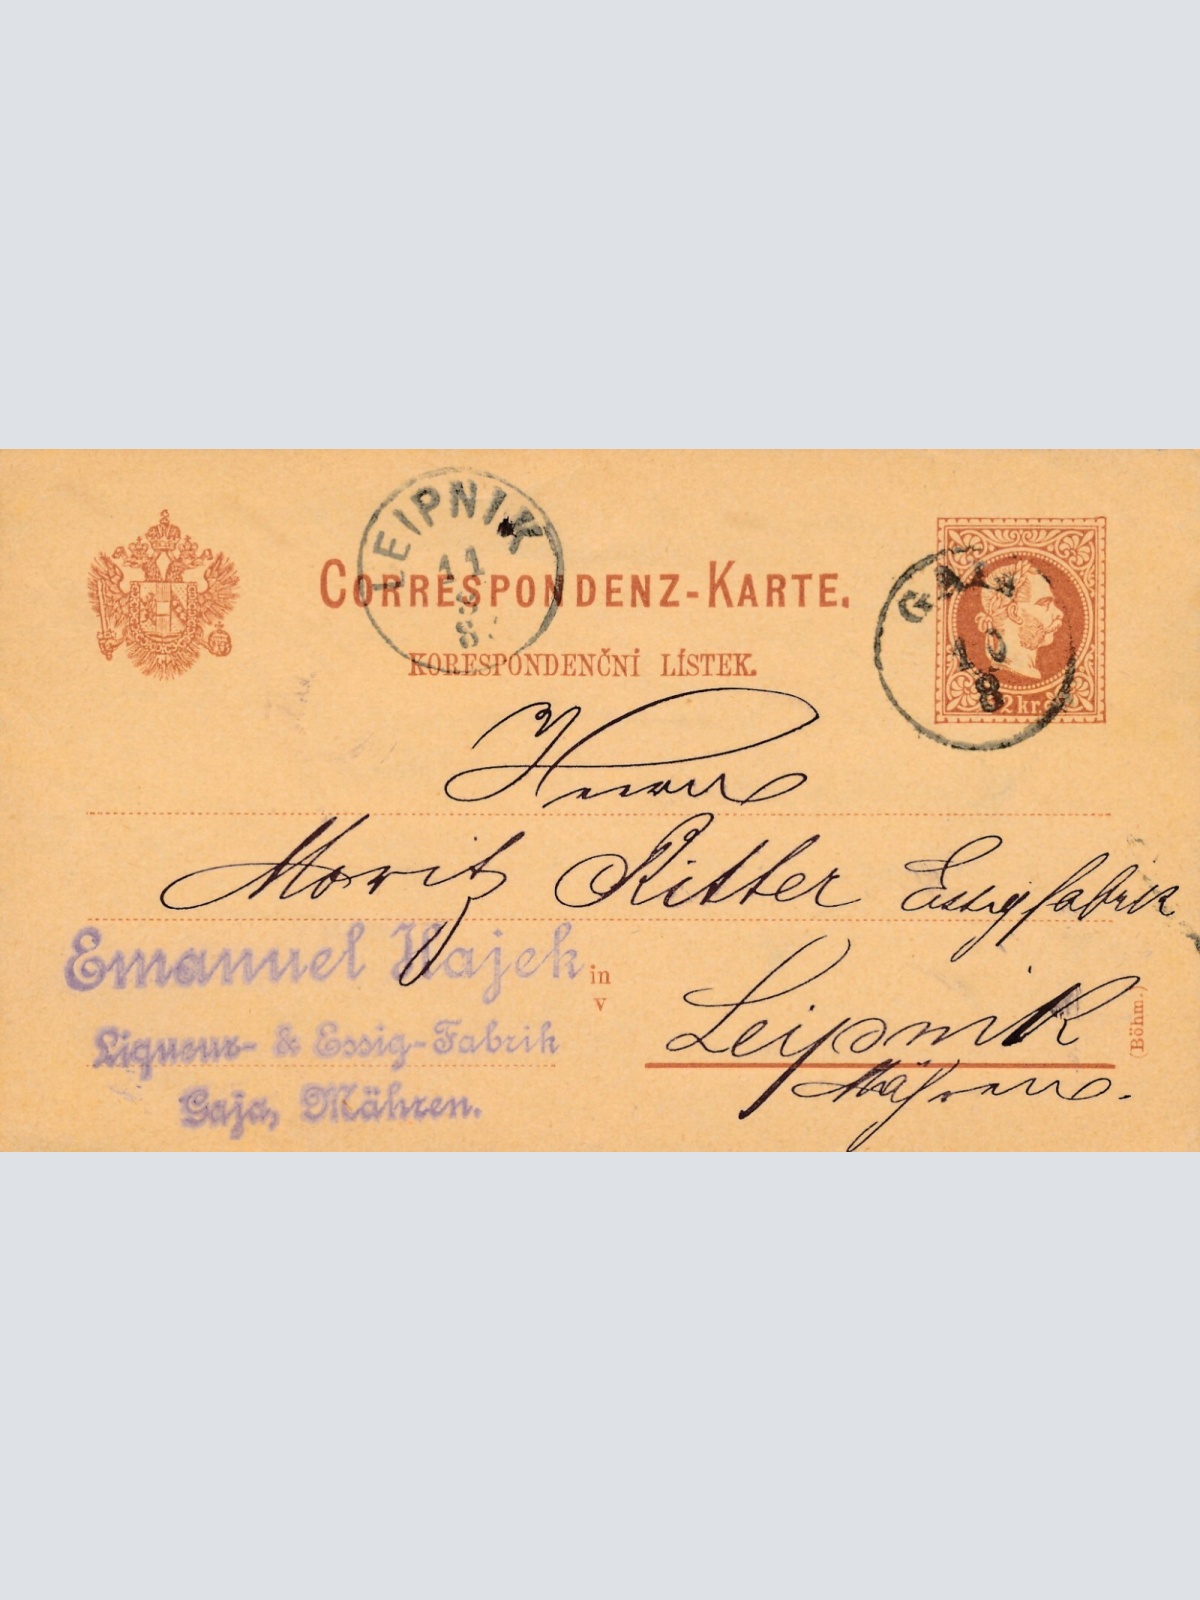 LEIPNIK
11
8
8
CORRESPONDENZ-KARTE.
KORESPONDENČNÍ LÍSTEK.
GAYA
10
8
2 kr.
Herrn
Moritz Ritter Essigfabrik
Emanuel Hajek
in
v
Leipnik
Liqueur- & Essig-Fabrik
Mähren.
Gaja, Mähren.
(Böhm.)